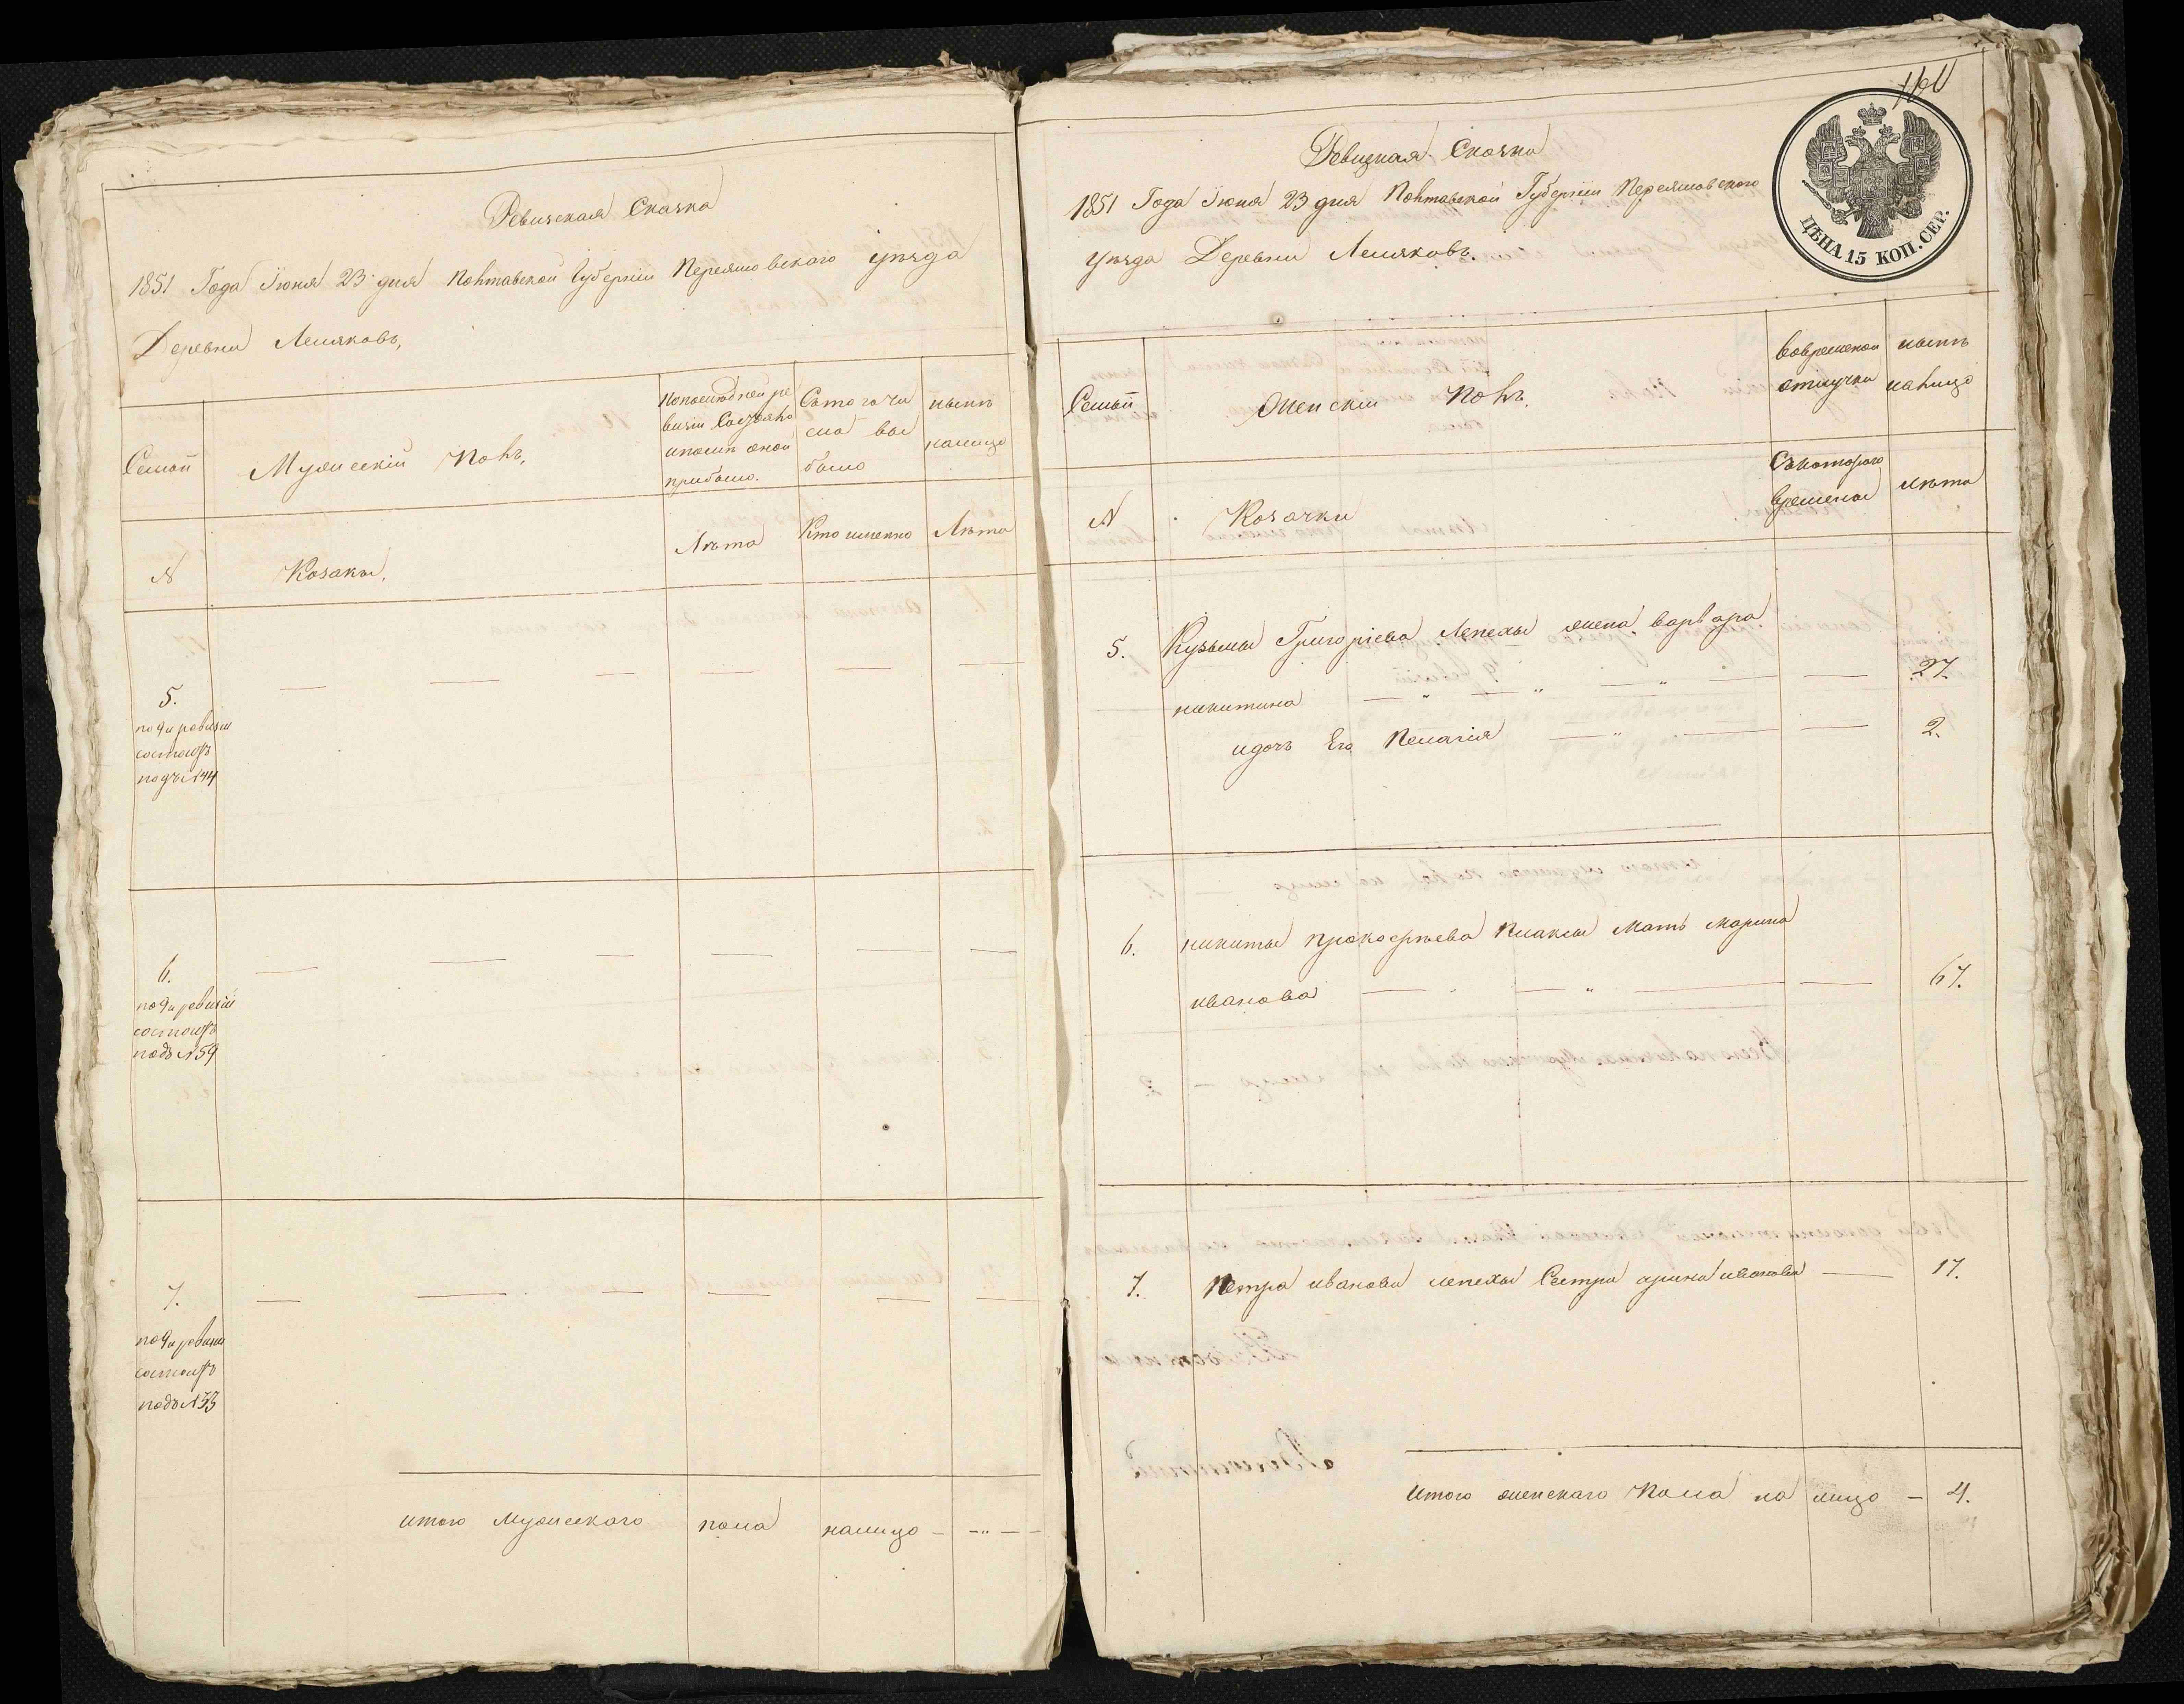 Ревизская Сказка
1851 Года Июня 23 дня Полтавской Губерніи Переяславского уѣзда
Деревни Лемяковъ,
Семьи
Мужескій Полъ,
По последней ре
визіи Состояло
и после оной
прибыло.
Съ того чи
сла вы
было
ныне
налицо
N
Козаки,
Лѣта
Кто именно
Лѣта
5.
по 9й ревизіи
состоитъ
подъ N 144
6.
по 9й ревизіи
состоитъ
подъ N 59
7.
по 9й ревизіи
состоитъ
подъ N 33
итого Мужеского пола налицо — — „ — —
160
Ревизская Сказка
1851 Года Июня 23 дня Полтавской Губерніи Переяславского
уѣзда Деревни Лемяковъ.
ЦѢНА 15 КОП. СЕР.
Семьи
Женскій Полъ.
Во временной
отлучки
ныне
налицо
N
Козачки
Съ которого
времени
лѣта
5. Кузьмы Григоріева Лепехи жена варвара
никитина — „ — „ — „ — — 27.
и дочь Его Пелагія — „ — — 2.
6. никиты прокофьева Плаксы Мать Марина
иванова — „ — „ — — 67.
7. Петра иванова лепехи Сестра арина иванова — 17.
Итого женскаго Пола на лицо — 4.